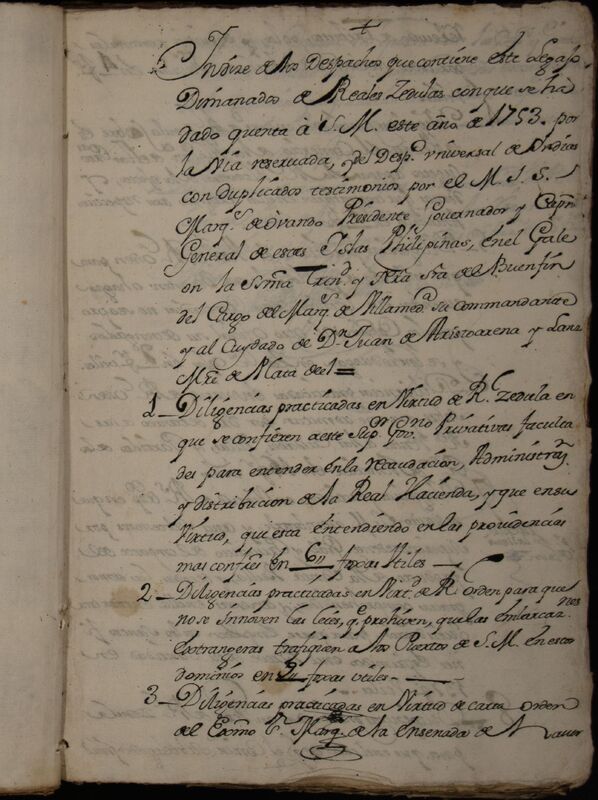 +
Indize de los Despachos que contiene este Legajo
Dimanados de Reales Zedulas con que se ha
dado quenta à S.M. este año de 1753. por
la Via reservada, y del Desp.º vniversal de Indias
con duplicados testimonios por el M. I. S.
Marq.s de Ovando Presidente Governador y Capn
General de estas Islas Philipinas, en el Gale
on la Ssma Trin.d y Nra Sra del Buenfin
del Cargo del Marq.s de Villamed.a su commandante
y al Cuydado de D.n Juan de Aristoarena y Lanz
Mre de Plata de el =
1 Diligencias practicadas en Virtud de R.l Zedula en
que se confieren a este Sup.or Gov.no Privativas faculta
des para entender en la recaudacion, Administra.n
y distribucion de la Real Hacienda, y que en su
Virtud, que esta entendiendo en las providencias
mas confres En 6,, foxas Utiles
2 Diligencias practicadas en Virt.d de R.l orden para que
no se innoven las leies, q.e prohiven, que las embarcaz.nes
Extrangeras trafiquen a los Puertos de S.M. en estos
dominios en 9,, foxas utiles
3 Diligencias practicadas en Virtud de carta orden
del Exmo S.r Marq.s de la Ensenada de